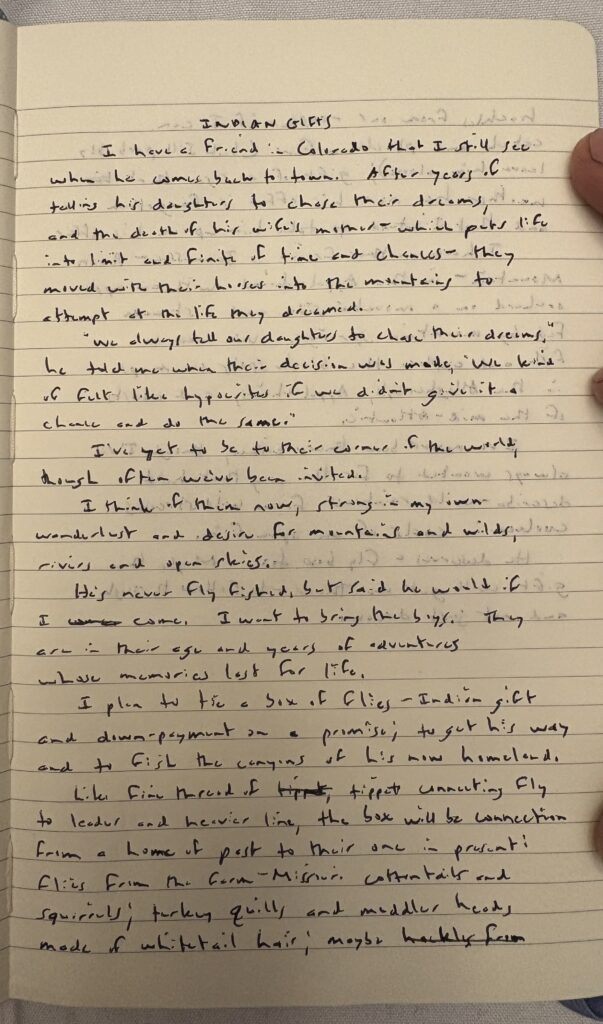 INDIAN GIFTS
I have a friend in Colorado that I still see
when he comes back to town. After years of
telling his daughters to chase their dreams,
and the death of his wife's mother - which puts life
into limit and finite of time and chances - they
moved with their horses into the mountains to
attempt at the life they dreamed.
"We always tell our daughters to chase their dreams,"
he told me when their decision was made, "We kind
of felt like hypocrites if we didn't give it a
chance and do the same."
I've yet to be to their corner of the world,
though often we've been invited.
I think of them now, strong in my own
wanderlust and desire for mountains and wilds,
rivers and open skies.
He's never fly fished, but said he would if
I come. I want to bring the boys. They
are in their age and years of adventures
whose memories last for life.
I plan to tie a box of flies - Indian gift
and down-payment on a promise; to get his way
and to fish the canyons of his now homeland.
Like fine thread of tippet, tippet connecting fly
to leader and heavier line, the box will be connection
from a home of past to their one in present:
flies from the farm - Missouri cottontails and
squirrels; turkey quills and muddler heads
made of whitetail hair; maybe hackles from